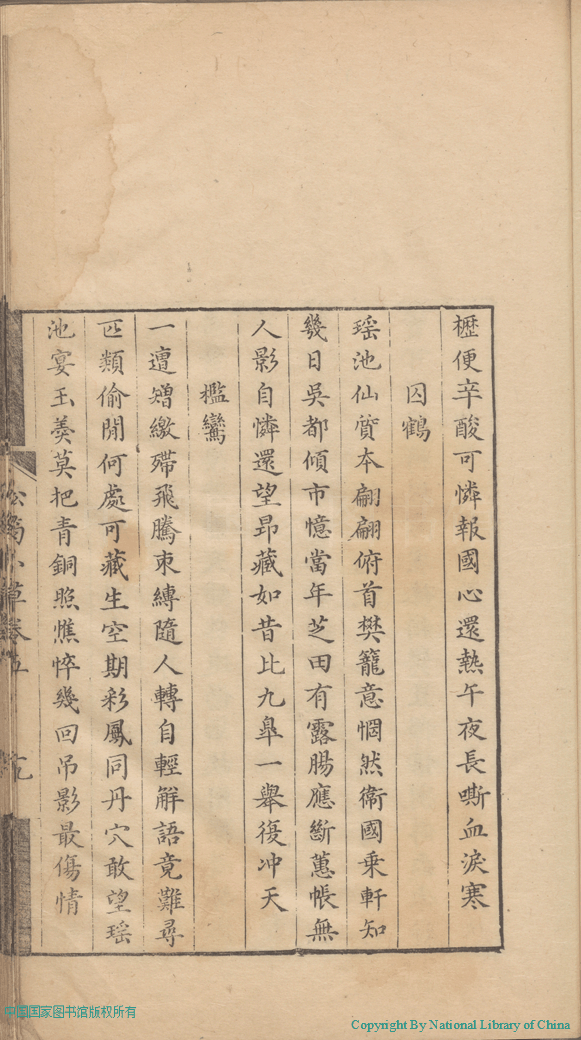 櫪便辛酸可憐報國心還熱午夜長嘶血淚寒
囚鶴
瑶池仙質本翩翩俯首樊籠意惘然衛國乗軒知
幾日吳都傾市憶當年芝田有露腸應斷蕙帳無
人影自憐還望昂藏如昔比九皋一舉復冲天
檻鸞
一遭矰繳殢飛騰束縛隨人轉自輕解語竟難尋
匹類偷閒何處可藏生空期彩鳳同丹穴敢望瑶
池宴玉羹莫把青銅照憔悴幾回吊影最傷情
小草卷五
中国国家图书馆版权所有
Copyright By National Library of China